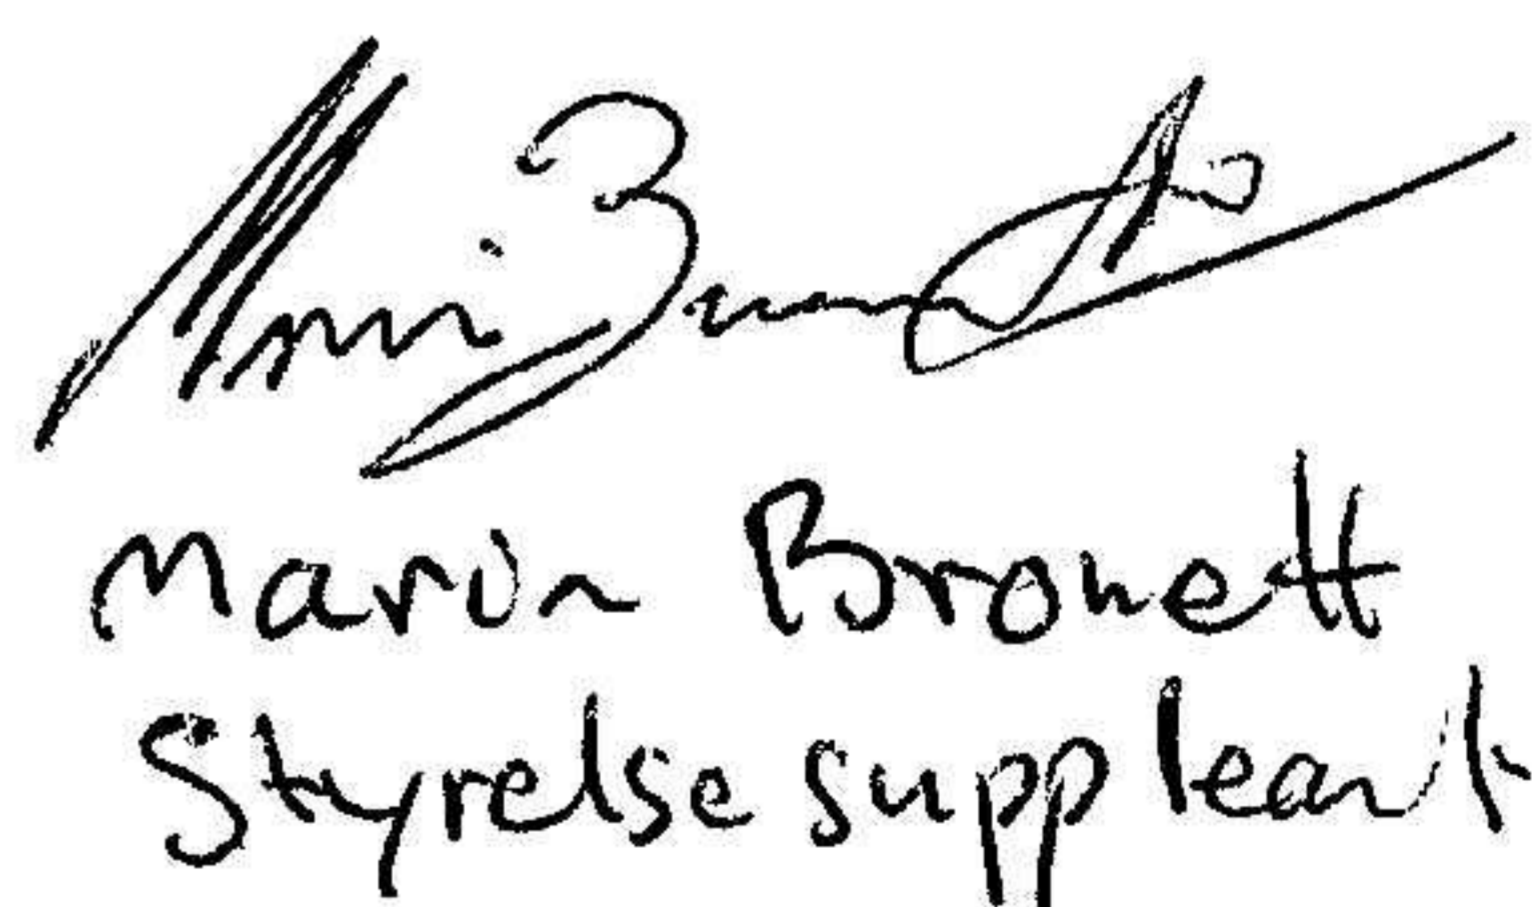 Marin Bronett
Styrelsesuppleant